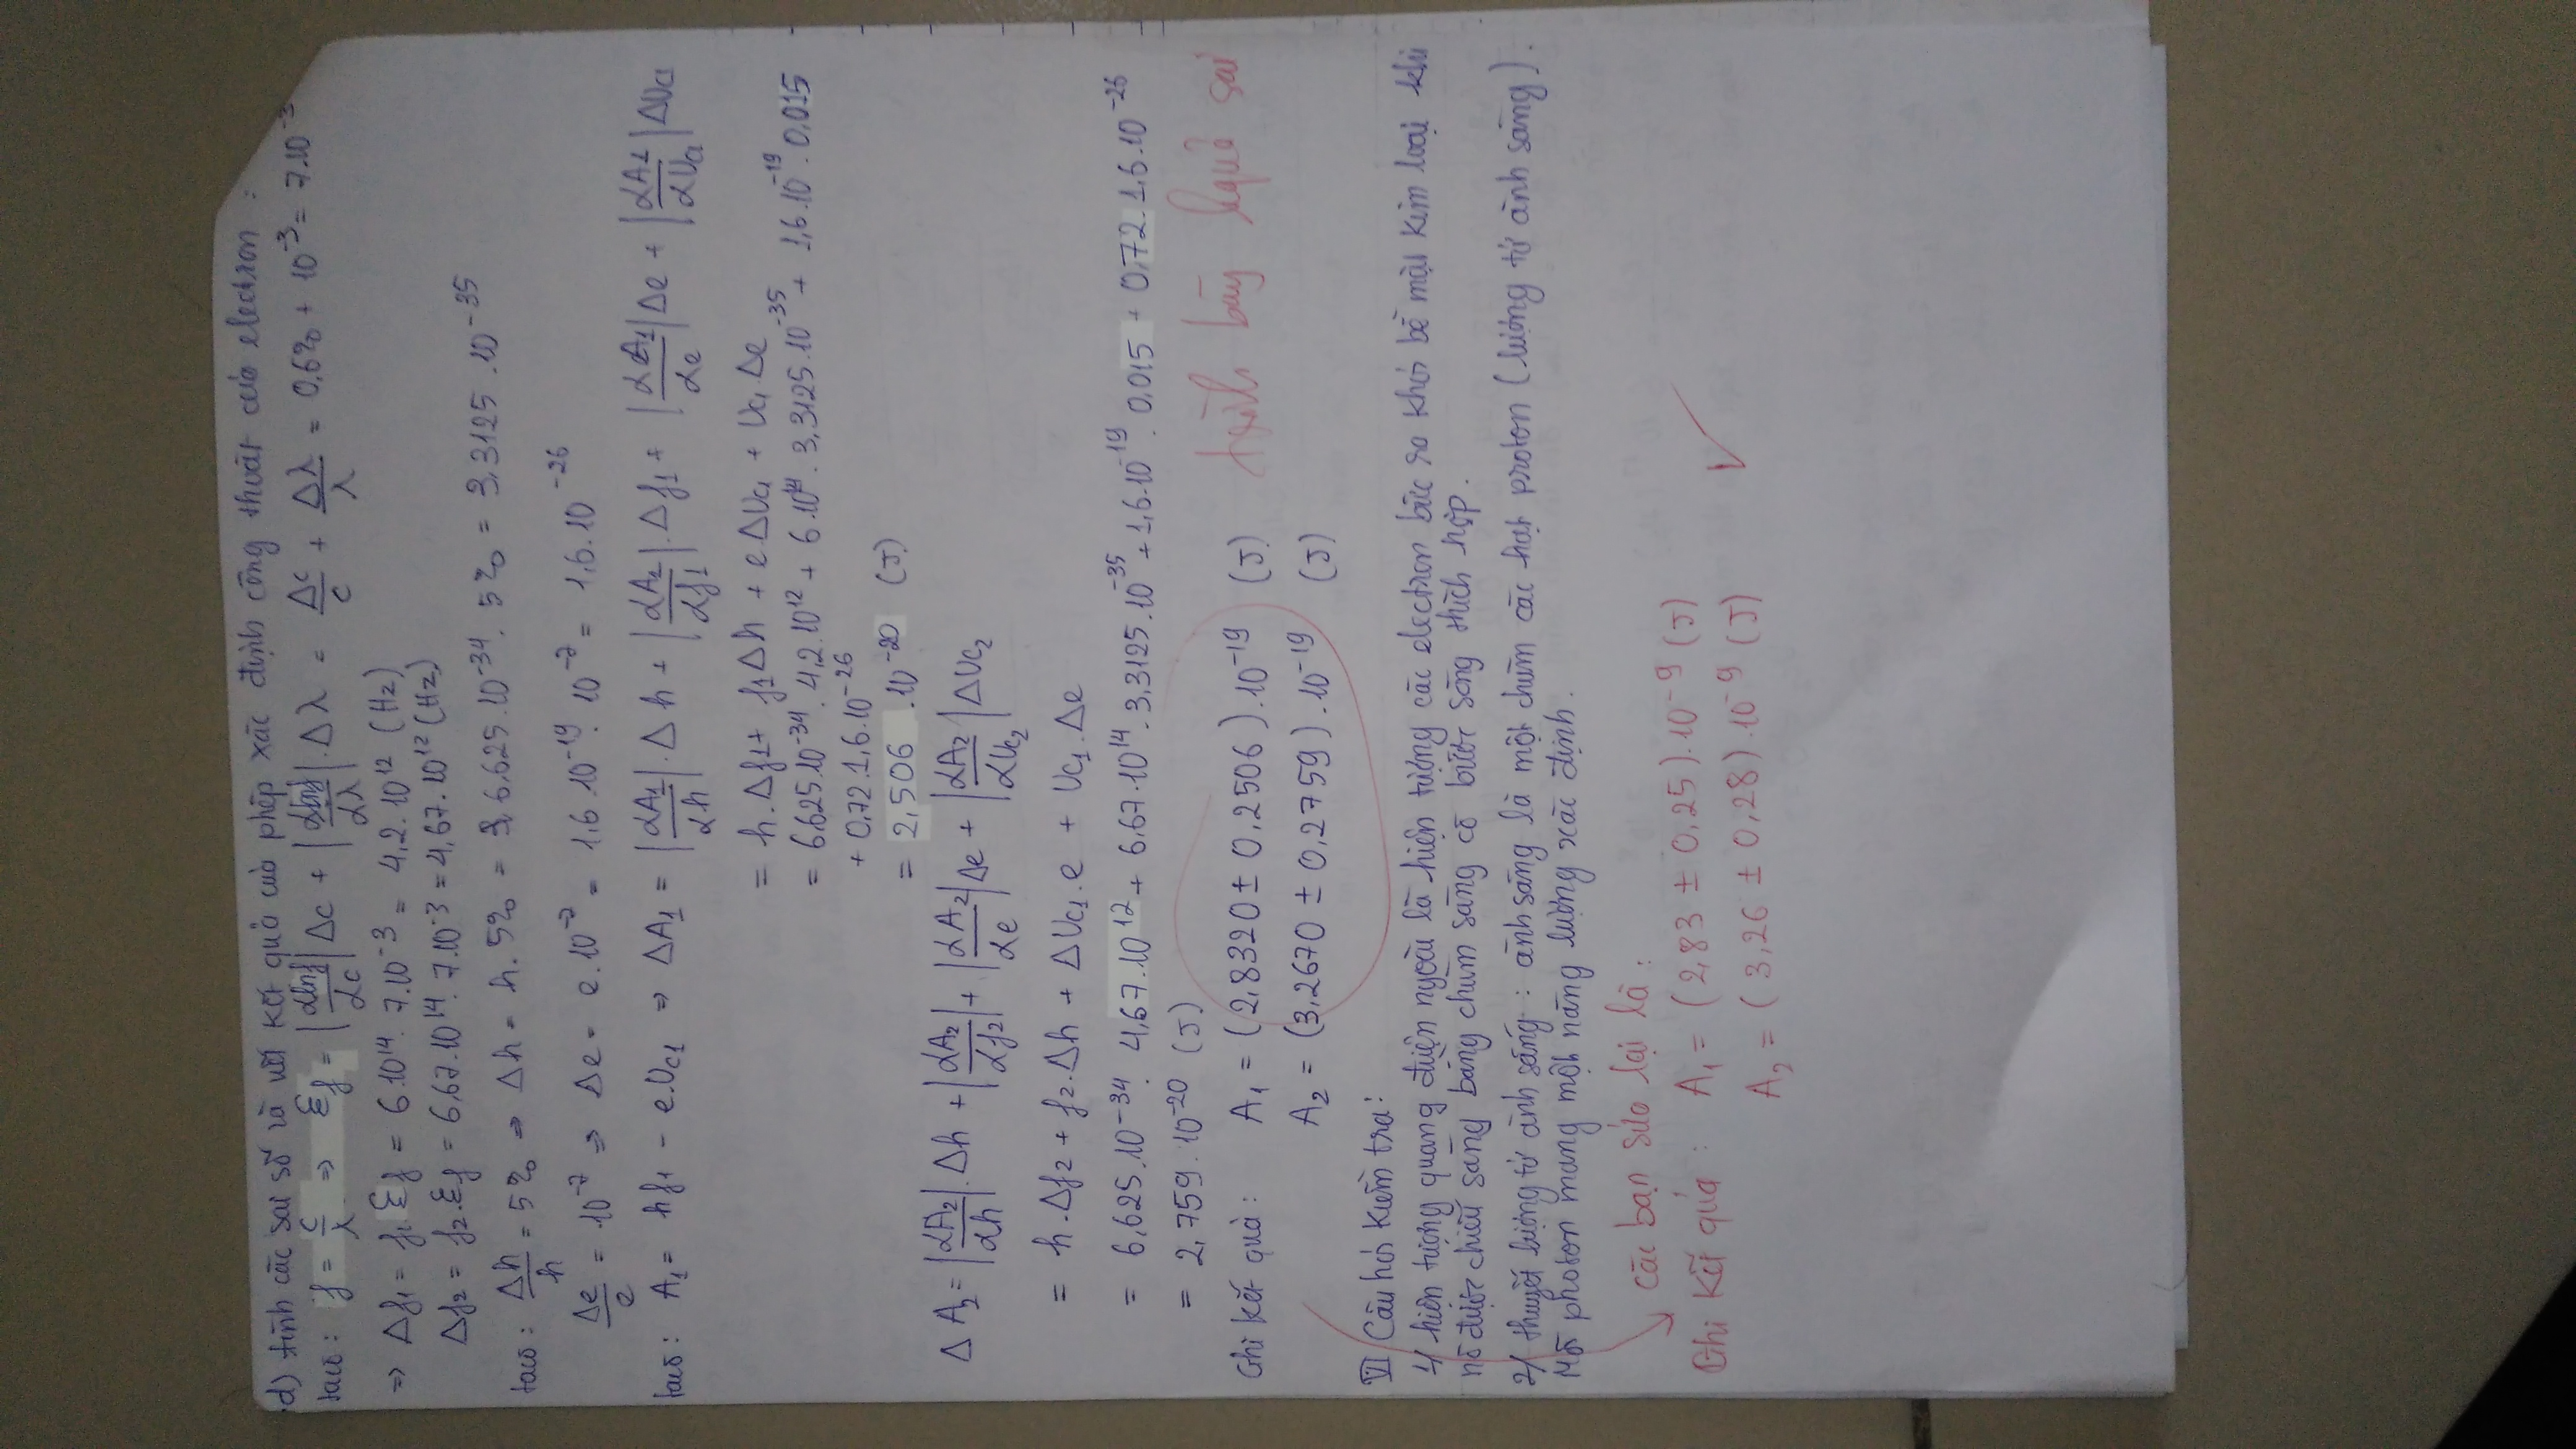 d) tính các sai số và viết kết quả của phép xác định công thoát của electron :
ta có : f = c/λ ⇒ Ɛf = |∂lnf/∂c| Δc + |∂lnf/∂λ| . Δλ = Δc/c + Δλ/λ = 0,6% + 10^-3 = 7.10^-3
⇒ Δf1 = f1.Ɛf = 6.10^14 . 7.10^-3 = 4,2.10^12 (Hz)
Δf2 = f2.Ɛf = 6,67.10^14 . 7.10^-3 = 4,67.10^12 (Hz)
ta có : Δh/h = 5% ⇒ Δh = h.5% = 6,625.10^-34 . 5% = 3,3125.10^-35
Δe/e = 10^-7 ⇒ Δe = e.10^-7 = 1,6.10^-19 . 10^-7 = 1,6.10^-26
ta có : A1 = hf1 - e.Uc1 ⇒ ΔA1 = |∂A1/∂h| . Δh + |∂A1/∂f1| . Δf1 + |∂A1/∂e| Δe + |∂A1/∂Uc1| ΔUc1
= h.Δf1 + f1Δh + eΔUc1 + Uc1.Δe
= 6,625.10^-34 . 4,2.10^12 + 6.10^14 . 3,3125.10^-35 + 1,6.10^-19 . 0,015
+ 0,72.1,6.10^-26
= 2,506 .10^-20 (J)
ΔA2 = |∂A2/∂h| . Δh + |∂A2/∂f2| + |∂A2/∂e| Δe + |∂A2/∂Uc2| ΔUc2
= h.Δf2 + f2.Δh + ΔUc1.e + Uc1.Δe
= 6,625.10^-34 . 4,67.10^12 + 6,67.10^14 . 3,3125.10^-35 + 1,6.10^-19 . 0,015 + 0,72.1,6.10^-26
= 2,759.10^-20 (J)
Ghi kết quả : A1 = (2,8320 ± 0,2506).10^-19 (J)
trình bày kquả sai
A2 = (3,2670 ± 0,2759).10^-19 (J)
VI Câu hỏi kiểm tra :
1/ hiện tượng quang điện ngoài là hiện tượng các electron bức ra khỏi bề mặt kim loại khi
nó được chiếu sáng bằng chùm sáng có bước sóng thích hợp.
2/ thuyết lượng tử ánh sáng : ánh sáng là một chùm các hạt proton (lượng tử ánh sáng).
Mỗi photon mang một năng lượng xác định.
các bạn sửa lại là :
Ghi kết quả : A1 = (2,83 ± 0,25).10^-9 (J)
A2 = (3,26 ± 0,28).10^-9 (J)